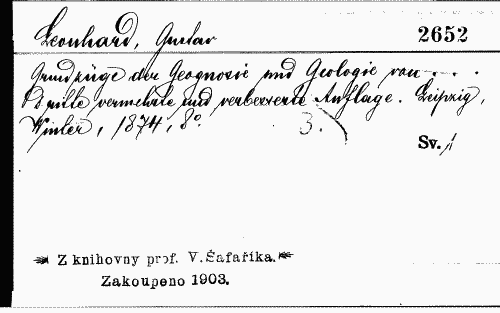 Leonhard, Gustav
2652
Grundzüge der Geognosie und Geologie von . . . .
Dritte vermehrte und verbesserte Auflage. Leipzig,
Winter, 1874, 8°.
3.
Sv. 1
Z knihovny prof. V. Šafaříka.
Zakoupeno 1903.